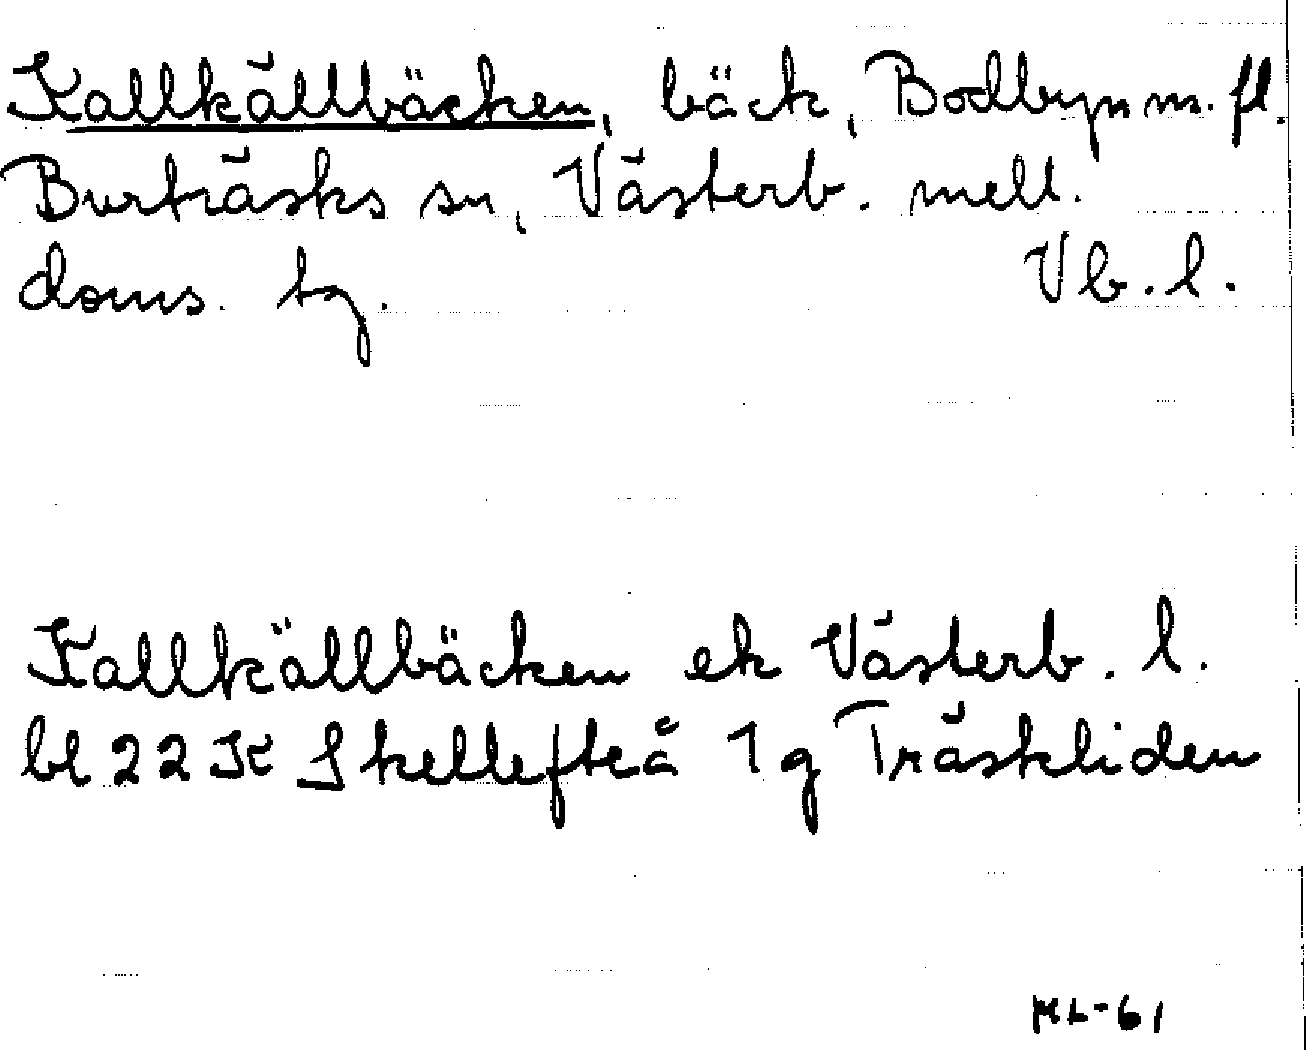 Kallkällbäcken, bäck, Bodbyn m. fl.
Burträsks sn, Västerb. mell.
doms. tg. Vb. l.
Kallkällbäcken ek Västerb. l.
bl 22 K Skellefteå 1g Träskliden
ML-61